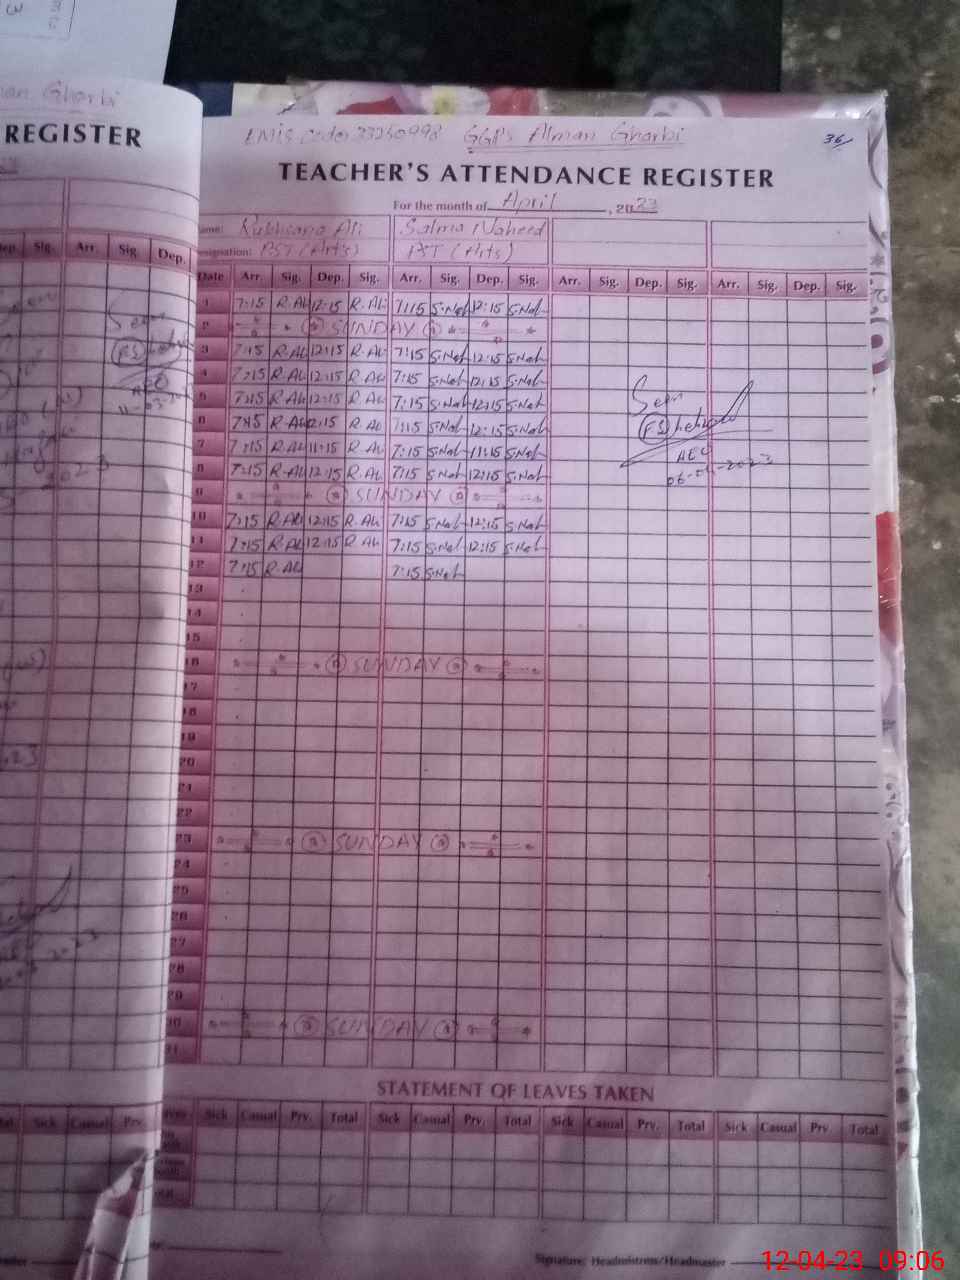 REGISTER
EMIS Code 33250998 GGPS Alman Gharbi
36
TEACHER'S ATTENDANCE REGISTER
For the month of April, 2023
Name: Rukhsana Ali Salma Naheed
Designation: PST (Arts) PST (Arts)
Date Arr. Sig. Dep. Sig. Arr. Sig. Dep. Sig. Arr. Sig. Dep. Sig. Arr. Sig. Dep. Sig.
1 7:15 R.Ali 12:15 R.Ali 7:15 S.Nah 12:15 S.Nah
2 SUNDAY
3 7:15 R.Ali 12:15 R.Ali 7:15 S.Nah 12:15 S.Nah
4 7:15 R.Ali 12:15 R.Ali 7:15 S.Nah 12:15 S.Nah
5 7:15 R.Ali 12:15 R.Ali 7:15 S.Nah 12:15 S.Nah
6 7:15 R.Ali 12:15 R.Ali 7:15 S.Nah 12:15 S.Nah
7 7:15 R.Ali 11:15 R.Ali 7:15 S.Nah 11:15 S.Nah
8 7:15 R.Ali 12:15 R.Ali 7:15 S.Nah 12:15 S.Nah
9 SUNDAY
10 7:15 R.Ali 12:15 R.Ali 7:15 S.Nah 12:15 S.Nah
11 7:15 R.Ali 12:15 R.Ali 7:15 S.Nah 12:15 S.Nah
12 7:15 R.Ali 7:15 S.Nah
13
14
15
16 SUNDAY
17
18
19
20
21
22
23 SUNDAY
24
25
26
27
28
29
30 SUNDAY
31
Seen
AEO
06-04-2023
STATEMENT OF LEAVES TAKEN
Sick Casual Prv. Total Sick Casual Prv. Total Sick Casual Prv. Total Sick Casual Prv. Total
Signature: Headmistress/Headmaster
12-04-23 09:06